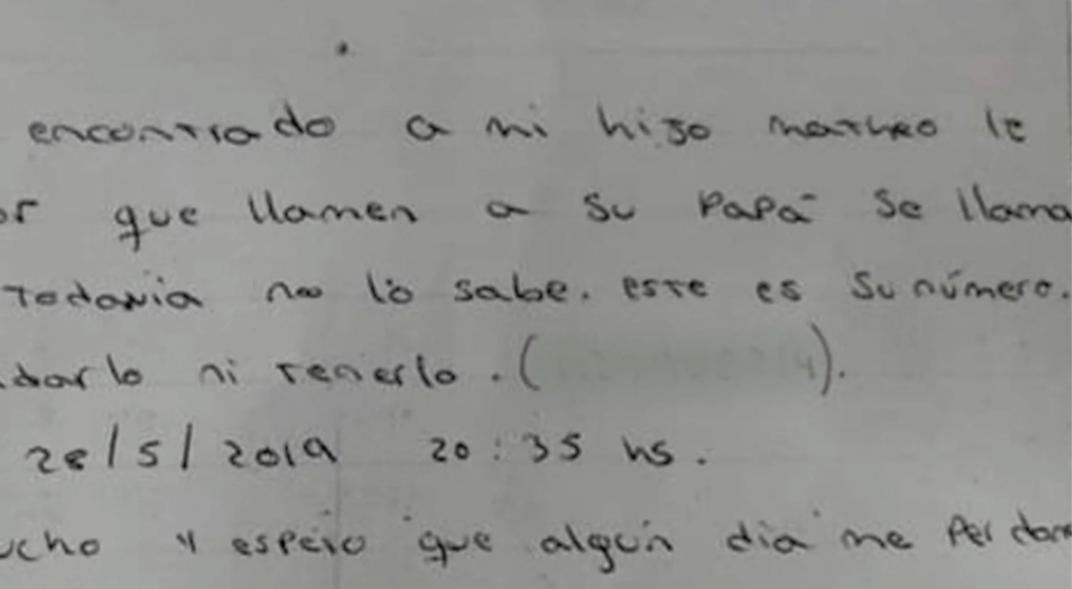 encontrado a mi hijo matheo le
or que llamen a su Papá se llama
Todavia no lo sabe. este es su número.
darlo ni tenerlo. ( ).
28/5/2019 20:35 hs.
ucho y espero que algún día me Perdon